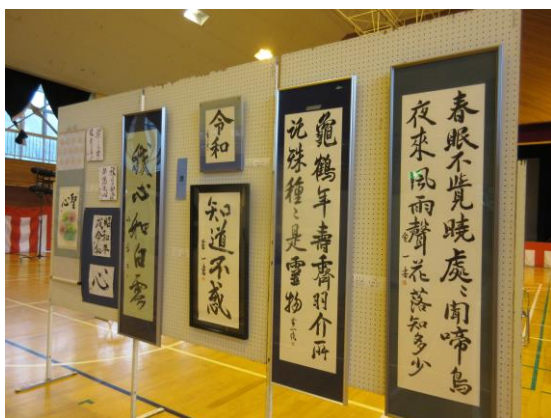 春眠不覺曉處〻聞啼鳥
夜來風雨聲花落知多少
龜鶴年壽齊羽介所
託殊種〻是靈物
令和
知道不惑
我心如白雲
心
聖心